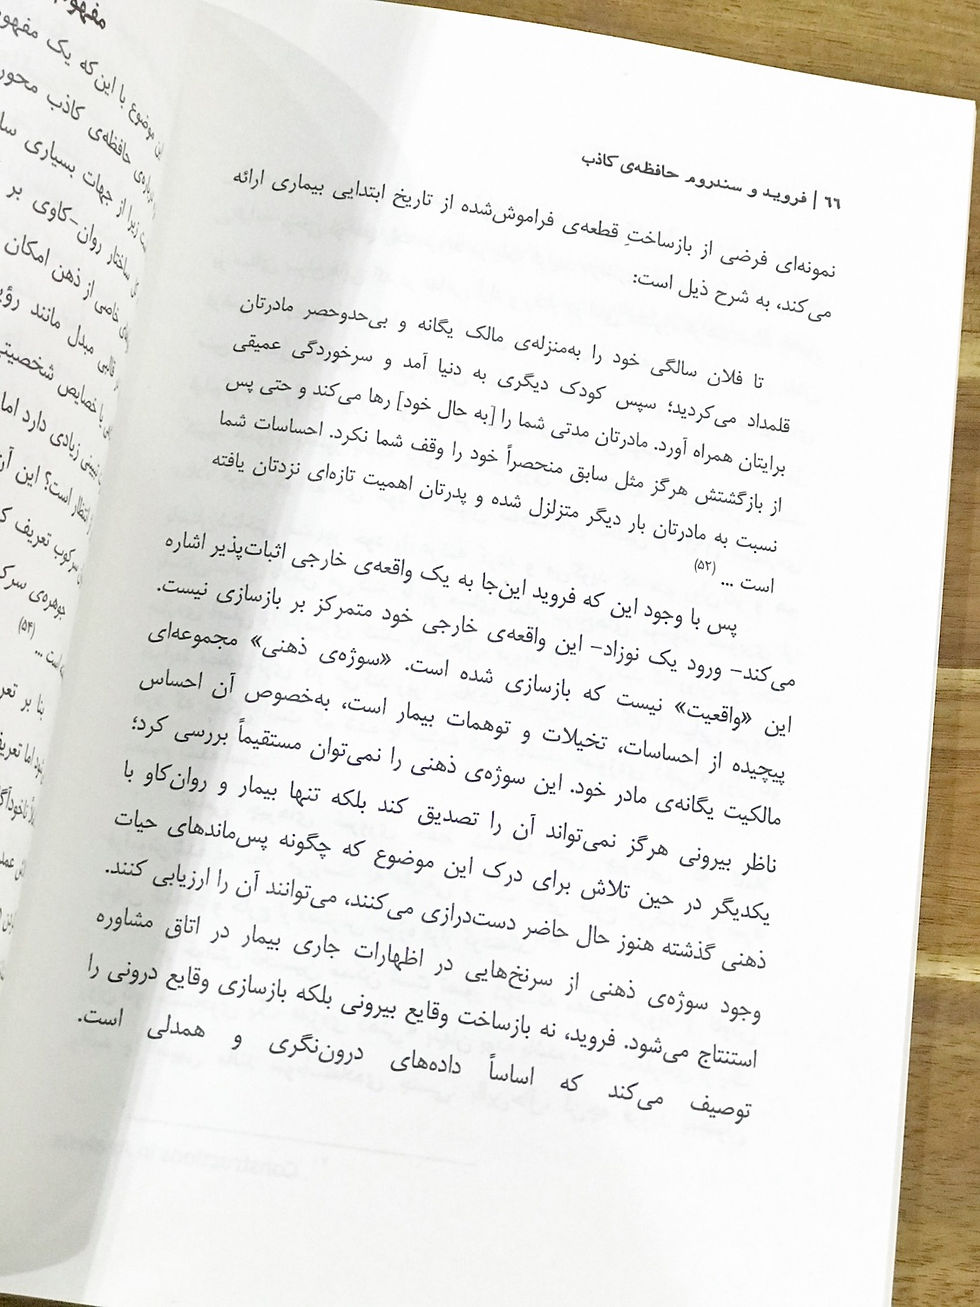 ۶۶ | فروید و سندروم حافظه‌ی کاذب
نمونه‌ای فرضی از بازساختِ قطعه‌ی فراموش‌شده از تاریخ ابتدایی بیماری ارائه
می‌کند، به شرح ذیل است:
تا فلان سالگی خود را به‌منزله‌ی مالک یگانه و بی‌حدوحصر مادرتان
قلمداد می‌کردید؛ سپس کودک دیگری به دنیا آمد و سرخوردگی عمیقی
برایتان همراه آورد. مادرتان مدتی شما را [به حال خود] رها می‌کند و حتی پس
از بازگشتش هرگز مثل سابق منحصراً خود را وقف شما نکرد. احساسات شما
نسبت به مادرتان بار دیگر متزلزل شده و پدرتان اهمیت تازه‌ای نزدتان یافته
است ... (۵۲)
پس با وجود این که فروید این‌جا به یک واقعه‌ی خارجی اثبات‌پذیر اشاره
می‌کند- ورود یک نوزاد- این واقعه‌ی خارجی خود متمرکز بر بازسازی نیست.
این «واقعیت» نیست که بازسازی شده است. «سوژه‌ی ذهنی» مجموعه‌ای
پیچیده از احساسات، تخیلات و توهمات بیمار است، به‌خصوص آن احساس
مالکیت یگانه‌ی مادر خود. این سوژه‌ی ذهنی را نمی‌توان مستقیماً بررسی کرد؛
ناظر بیرونی هرگز نمی‌تواند آن را تصدیق کند بلکه تنها بیمار و روان‌کاو با
یکدیگر در حین تلاش برای درک این موضوع که چگونه پس‌ماندهای حیات
ذهنی گذشته هنوز حال حاضر دست‌درازی می‌کنند، می‌توانند آن را ارزیابی کنند.
وجود سوژه‌ی ذهنی از سرنخ‌هایی در اظهارات جاری بیمار در اتاق مشاوره
استنتاج می‌شود. فروید، نه بازساخت وقایع بیرونی بلکه بازسازی وقایع درونی را
توصیف می‌کند که اساساً داده‌های درون‌نگری و همدلی است.
این موضوع با این‌که یک مفهوم
درباره‌ی حافظه‌ی کاذب محور
زیرا از جهات بسیاری
ساختار روان-کاوی بر
خاصی از ذهن امکان
قالبی مبدل مانند
با خصایص شخصیتی
زیادی دارد اما
انتظار است؟ این
سرکوب تعریف
جوهره‌ی
است ... (۵۴)
بنا بر
اما تعریف